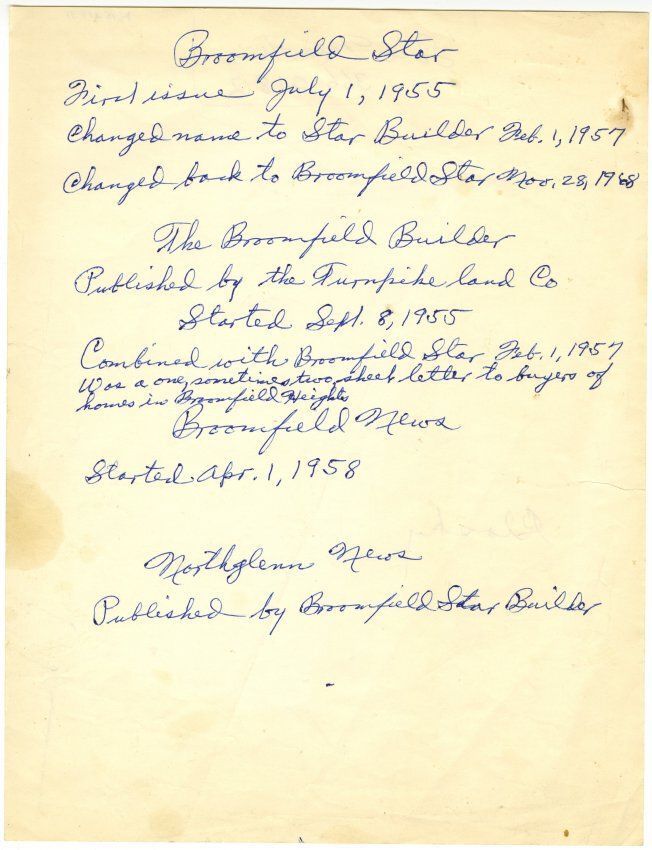 Broomfield Star
First issue July 1, 1955
Changed name to Star Builder Feb. 1, 1957
Changed back to Broomfield Star Nov. 28, 1968
The Broomfield Builder
Published by the Turnpike land Co
Started Sept. 8, 1955
Combined with Broomfield Star Feb. 1, 1957
Was a one, sometimes two, sheet letter to buyers of
homes in Broomfield Heights
Broomfield News
Started Apr. 1, 1958
Northglenn News
Published by Broomfield Star Builder